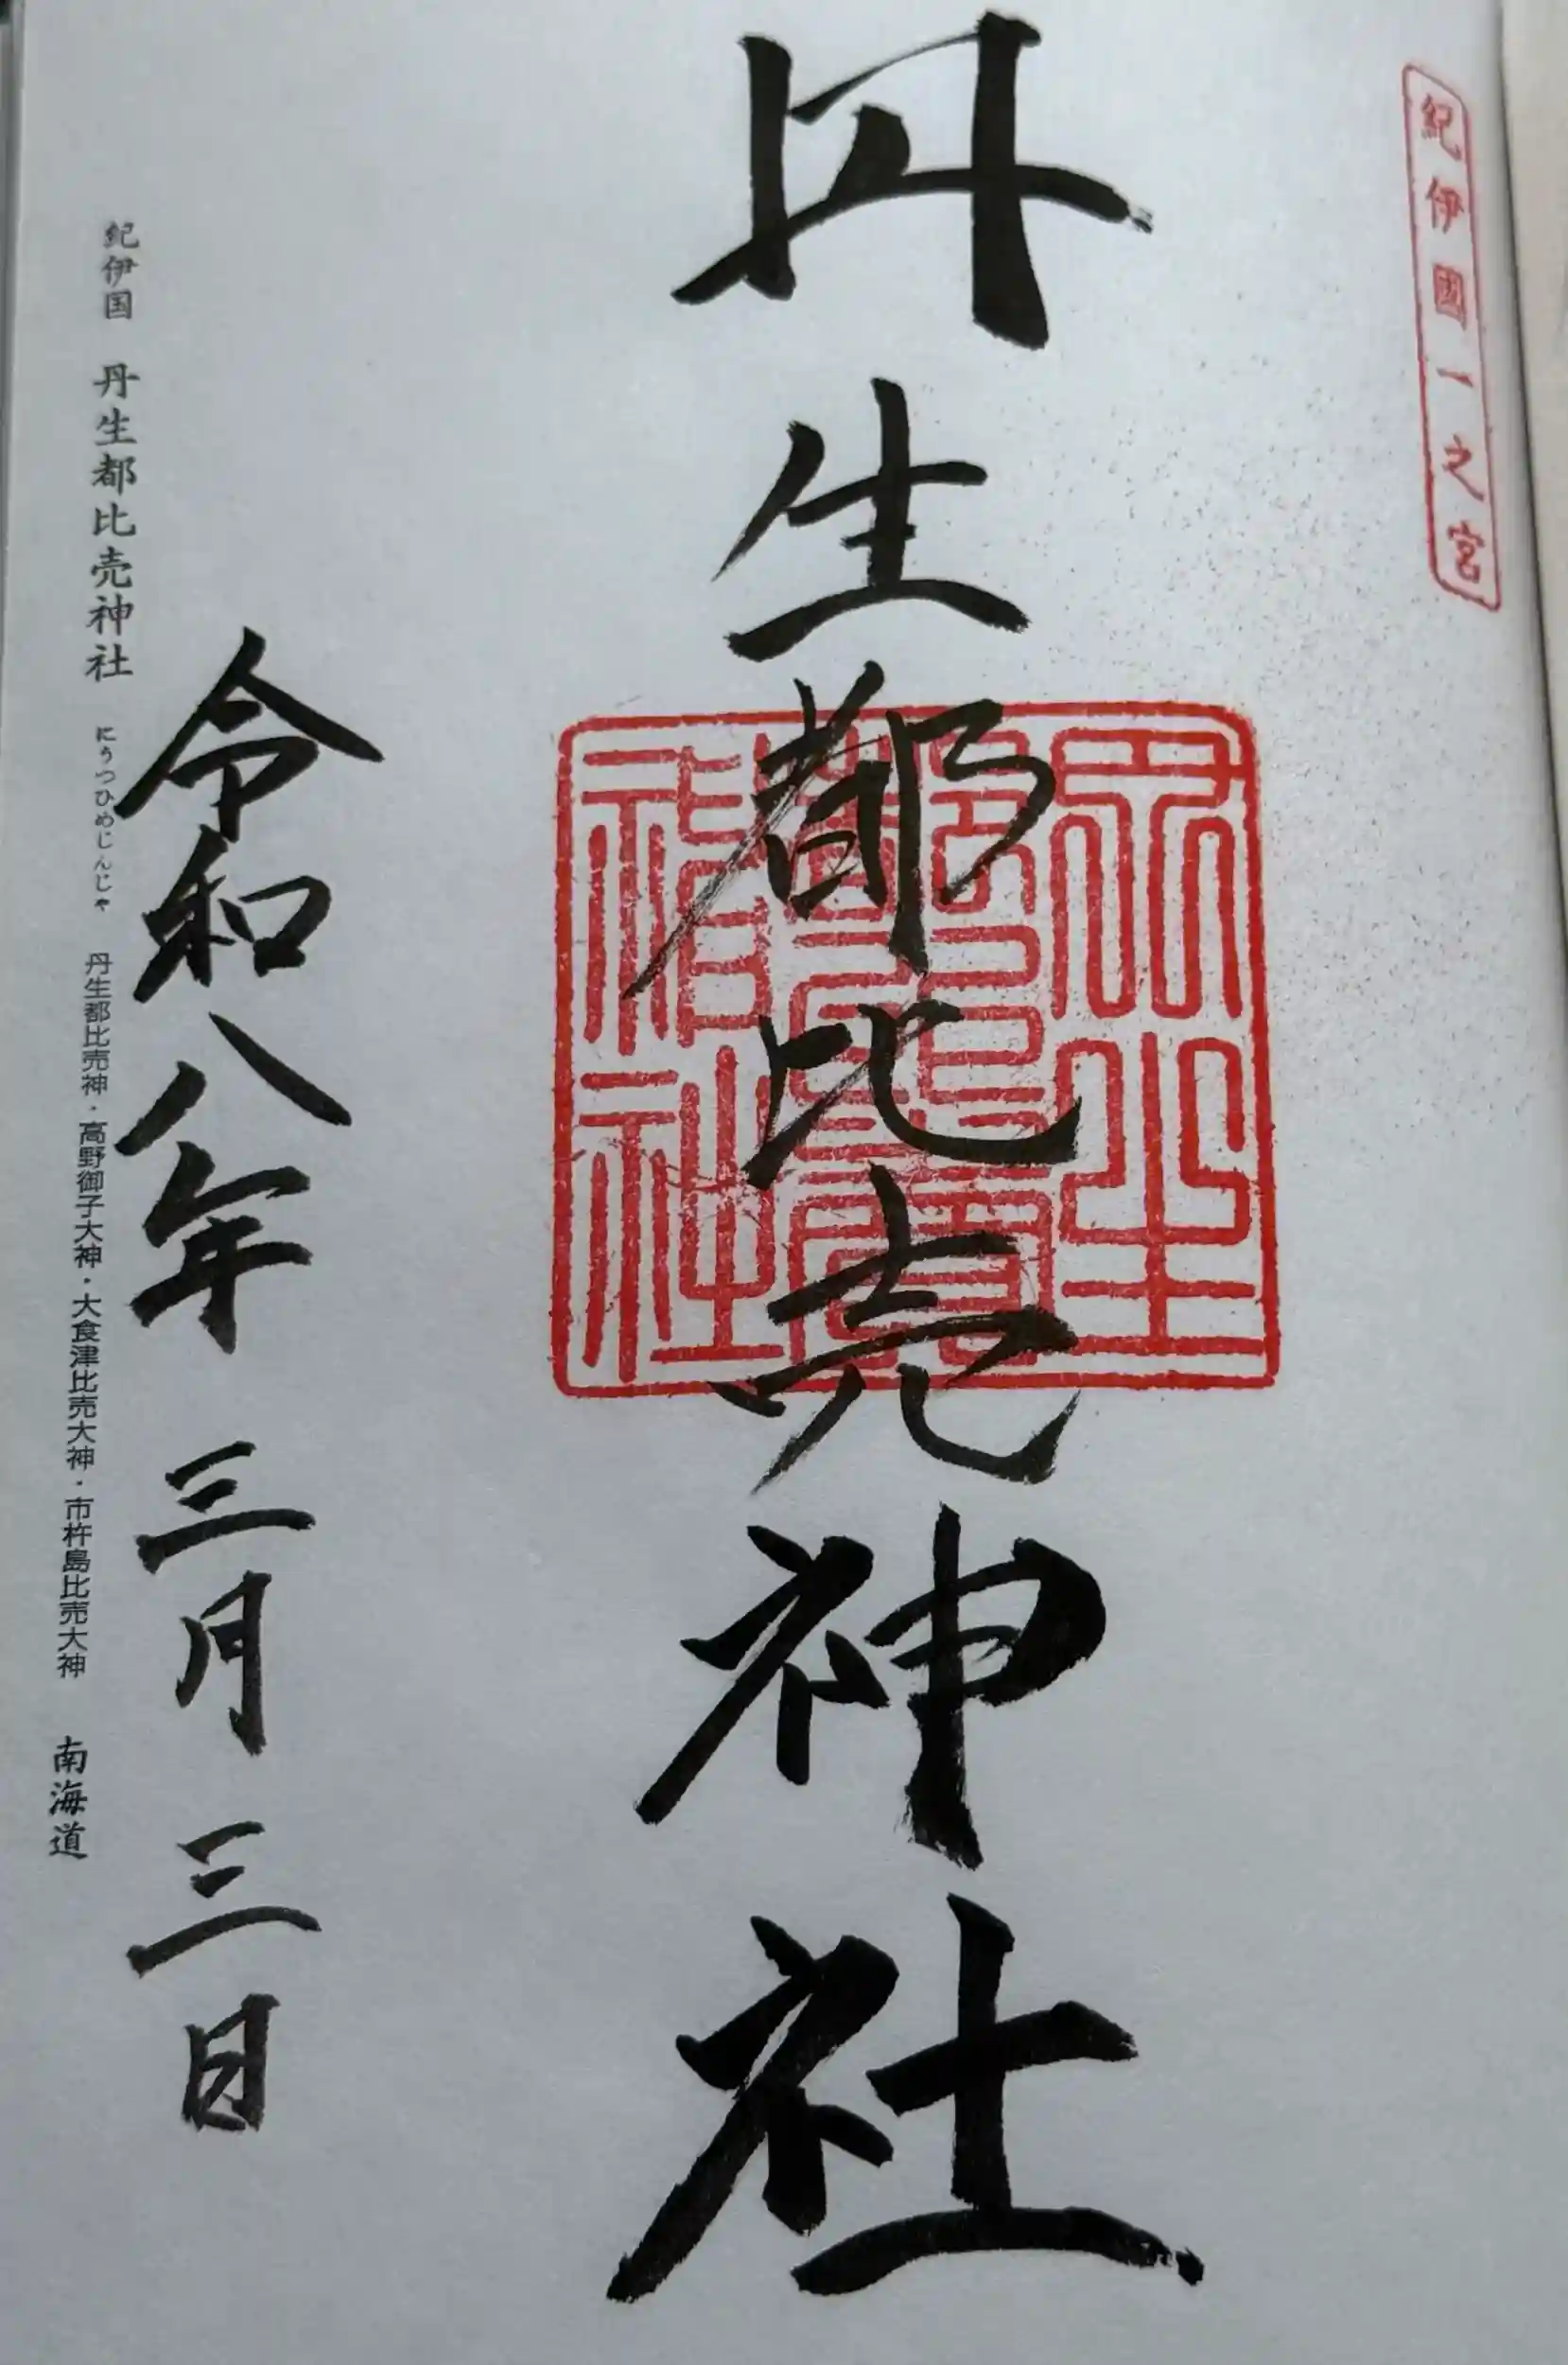 紀伊國一之宮
丹生都比売神社
丹生都比賣神社
令和八年 三月 三日
紀伊国 丹生都比売神社 にうつひめじんじゃ 丹生都比売神・高野御子大神・大食津比売大神・市杵島比売大神 南海道